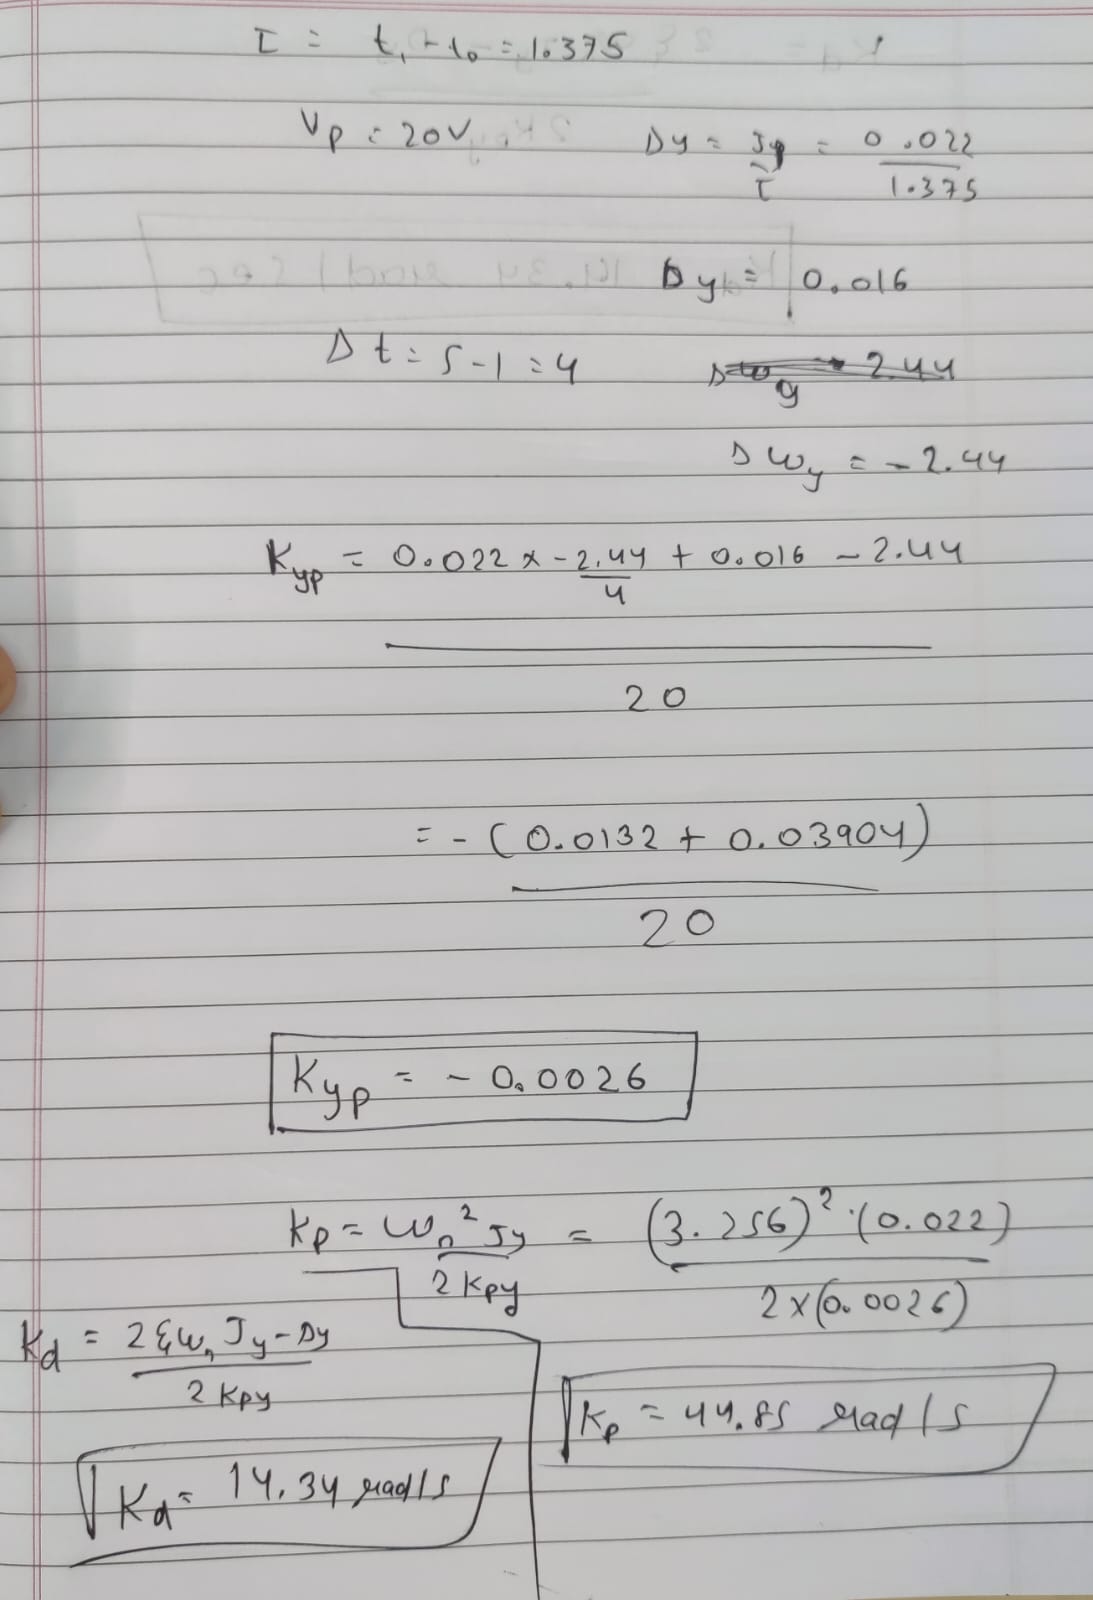 τ = t₁ - t₀ = 1.375
Vp = 20V Dy = Jy/τ = 0.022/1.375
Dy = 0.016
Δt = 5 - 1 = 4
Δωy = -2.44
Kyp = 0.022 x -2.44/4 + 0.016 - 2.44
20
= - (0.0132 + 0.03904)
20
Kyp = - 0.0026
Kp = ωn² Jy / 2 Kpy = (3.256)² · (0.022) / 2 x (0.0026)
Kd = 2 ξ ωn Jy - Dy / 2 Kpy
Kp = 44.85 rad/s
Kd = 14.34 rad/s